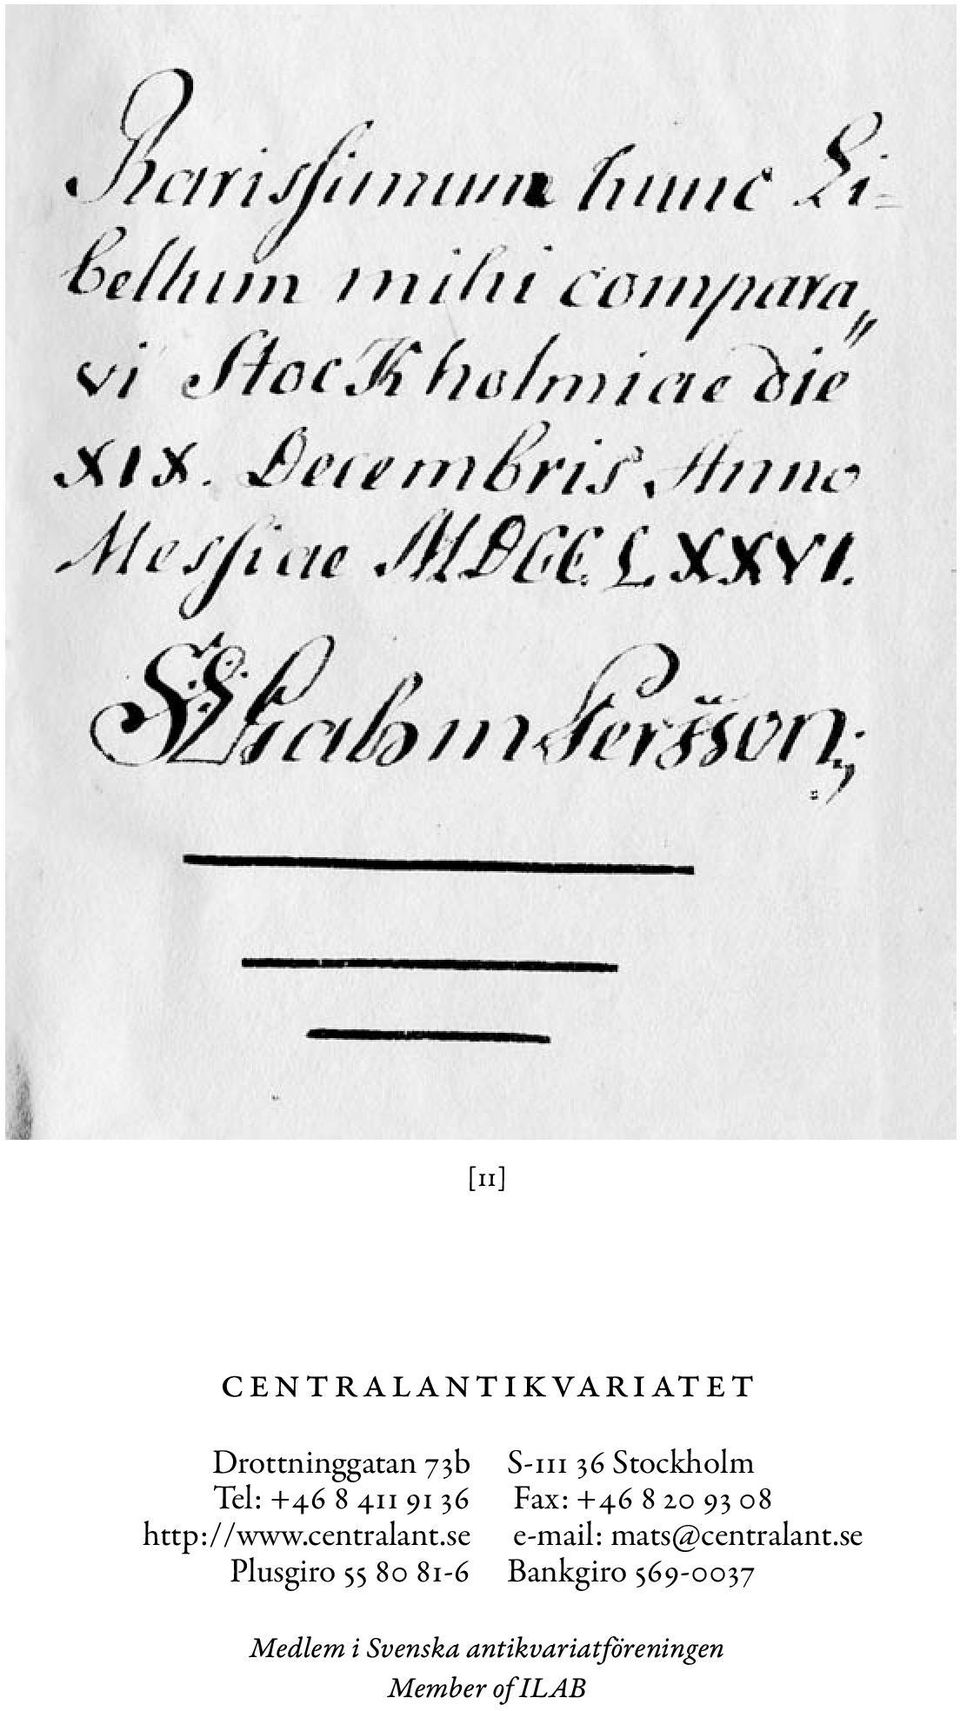 Rarissimum hunc Li-
bellum mihi compara„
vi StocKholmiae die
XIX. Decembris Anno
Messiae MDCCLXXVI.
Persson;
[11]
CENTRALANTIKVARIATET
Drottninggatan 73b S-111 36 Stockholm
Tel: +46 8 411 91 36 Fax: +46 8 20 93 08
http://www.centralant.se e-mail: mats@centralant.se
Plusgiro 55 80 81-6 Bankgiro 569-0037
Medlem i Svenska antikvariatföreningen
Member of ILAB